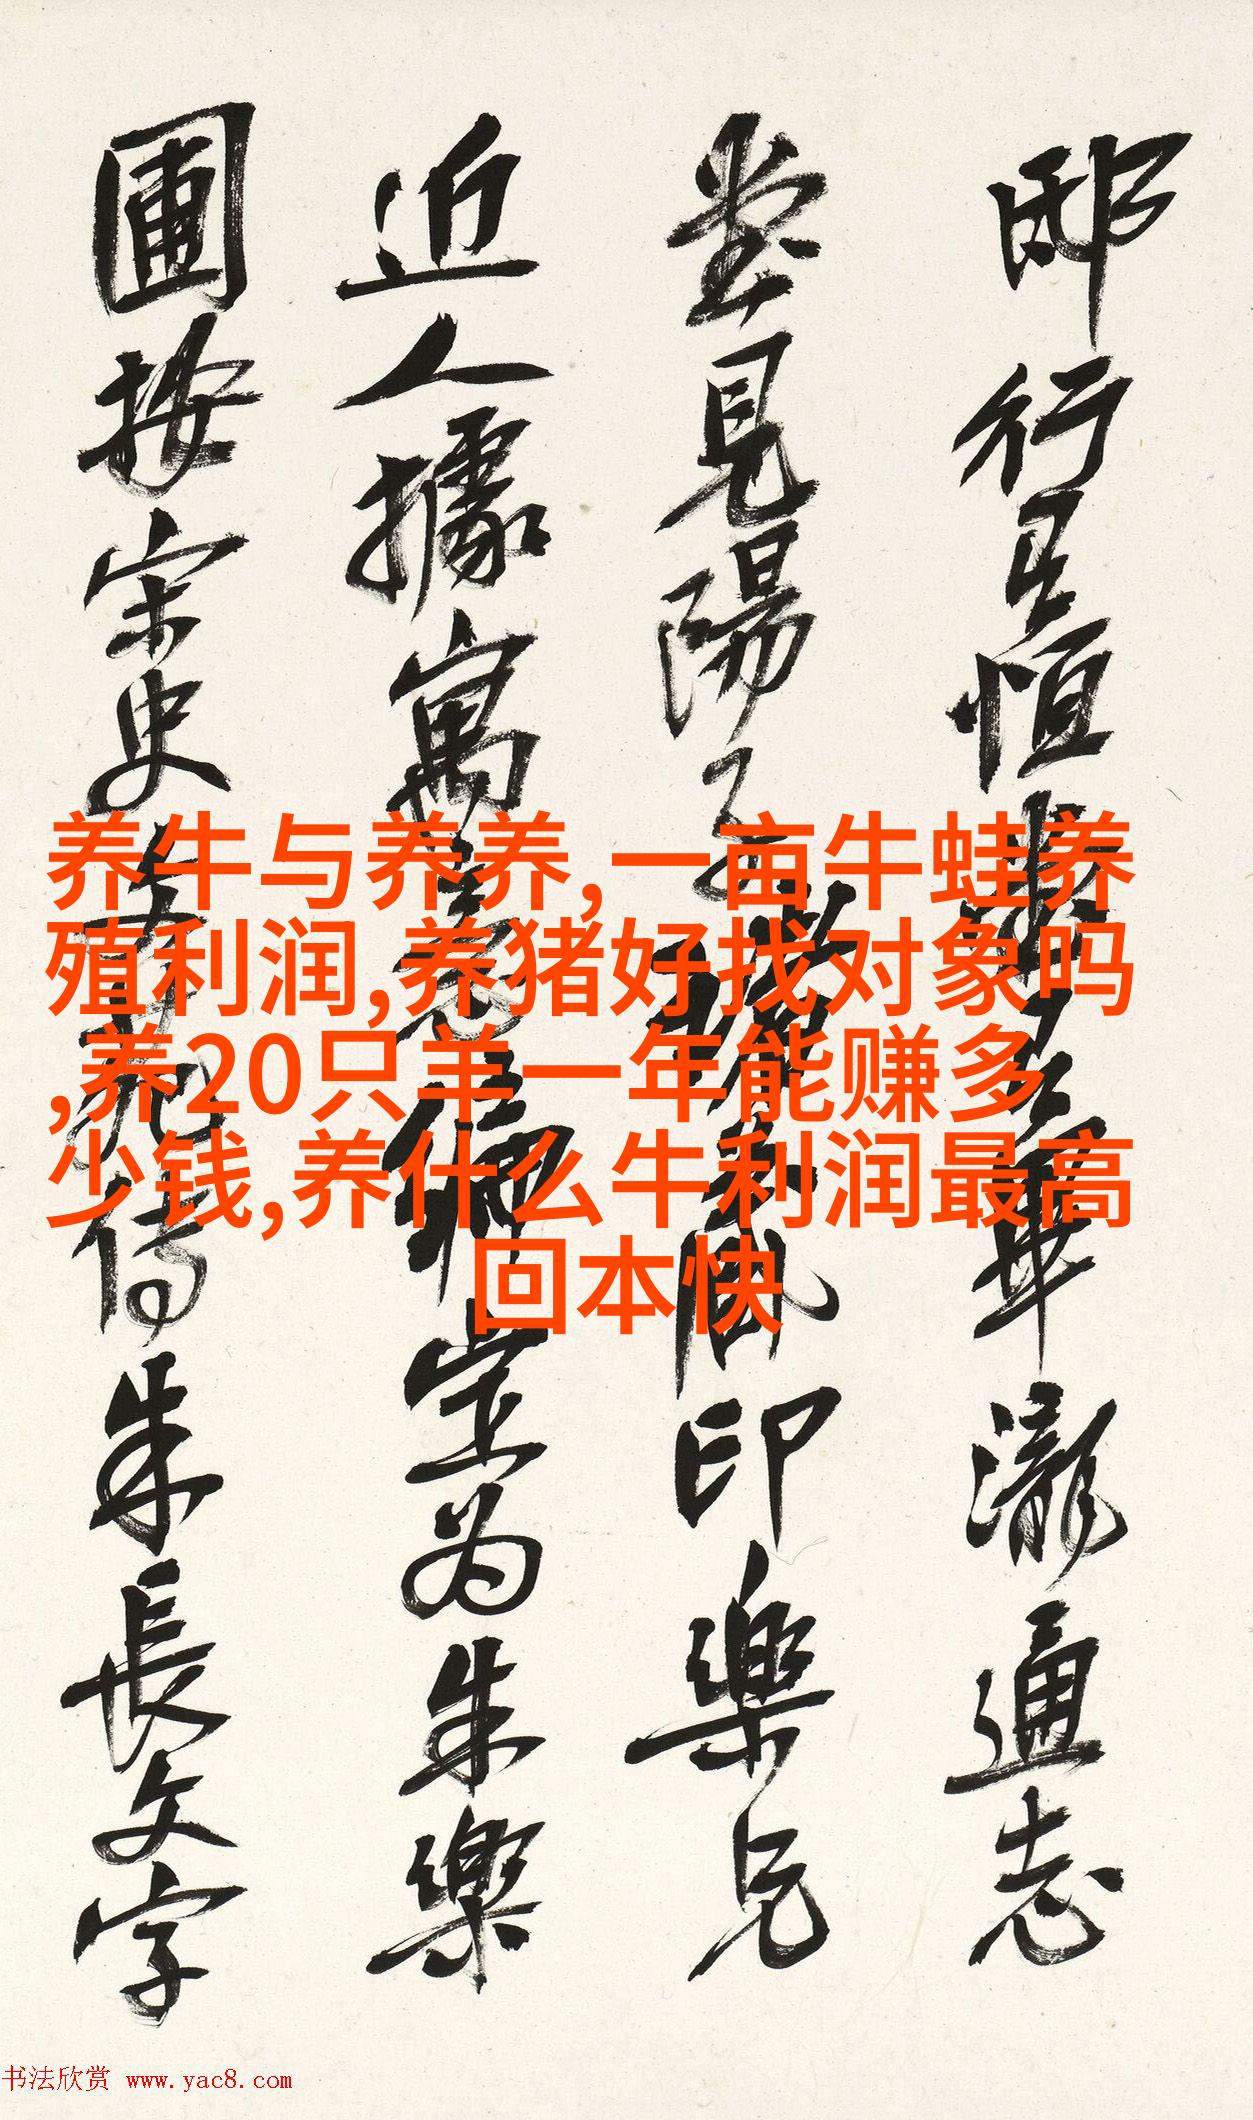 邸行呈恒
瀧通志
堂見陽子
印樂兄
近人據寓
定为朱樂
圃按宋史
傳朱長文字
养牛与养养,一亩牛蛙养
殖利润,养猪好找对象吗
,养20只羊一年能赚多
少钱,养什么牛利润最高
回本快
书法欣赏 www.yac8.com